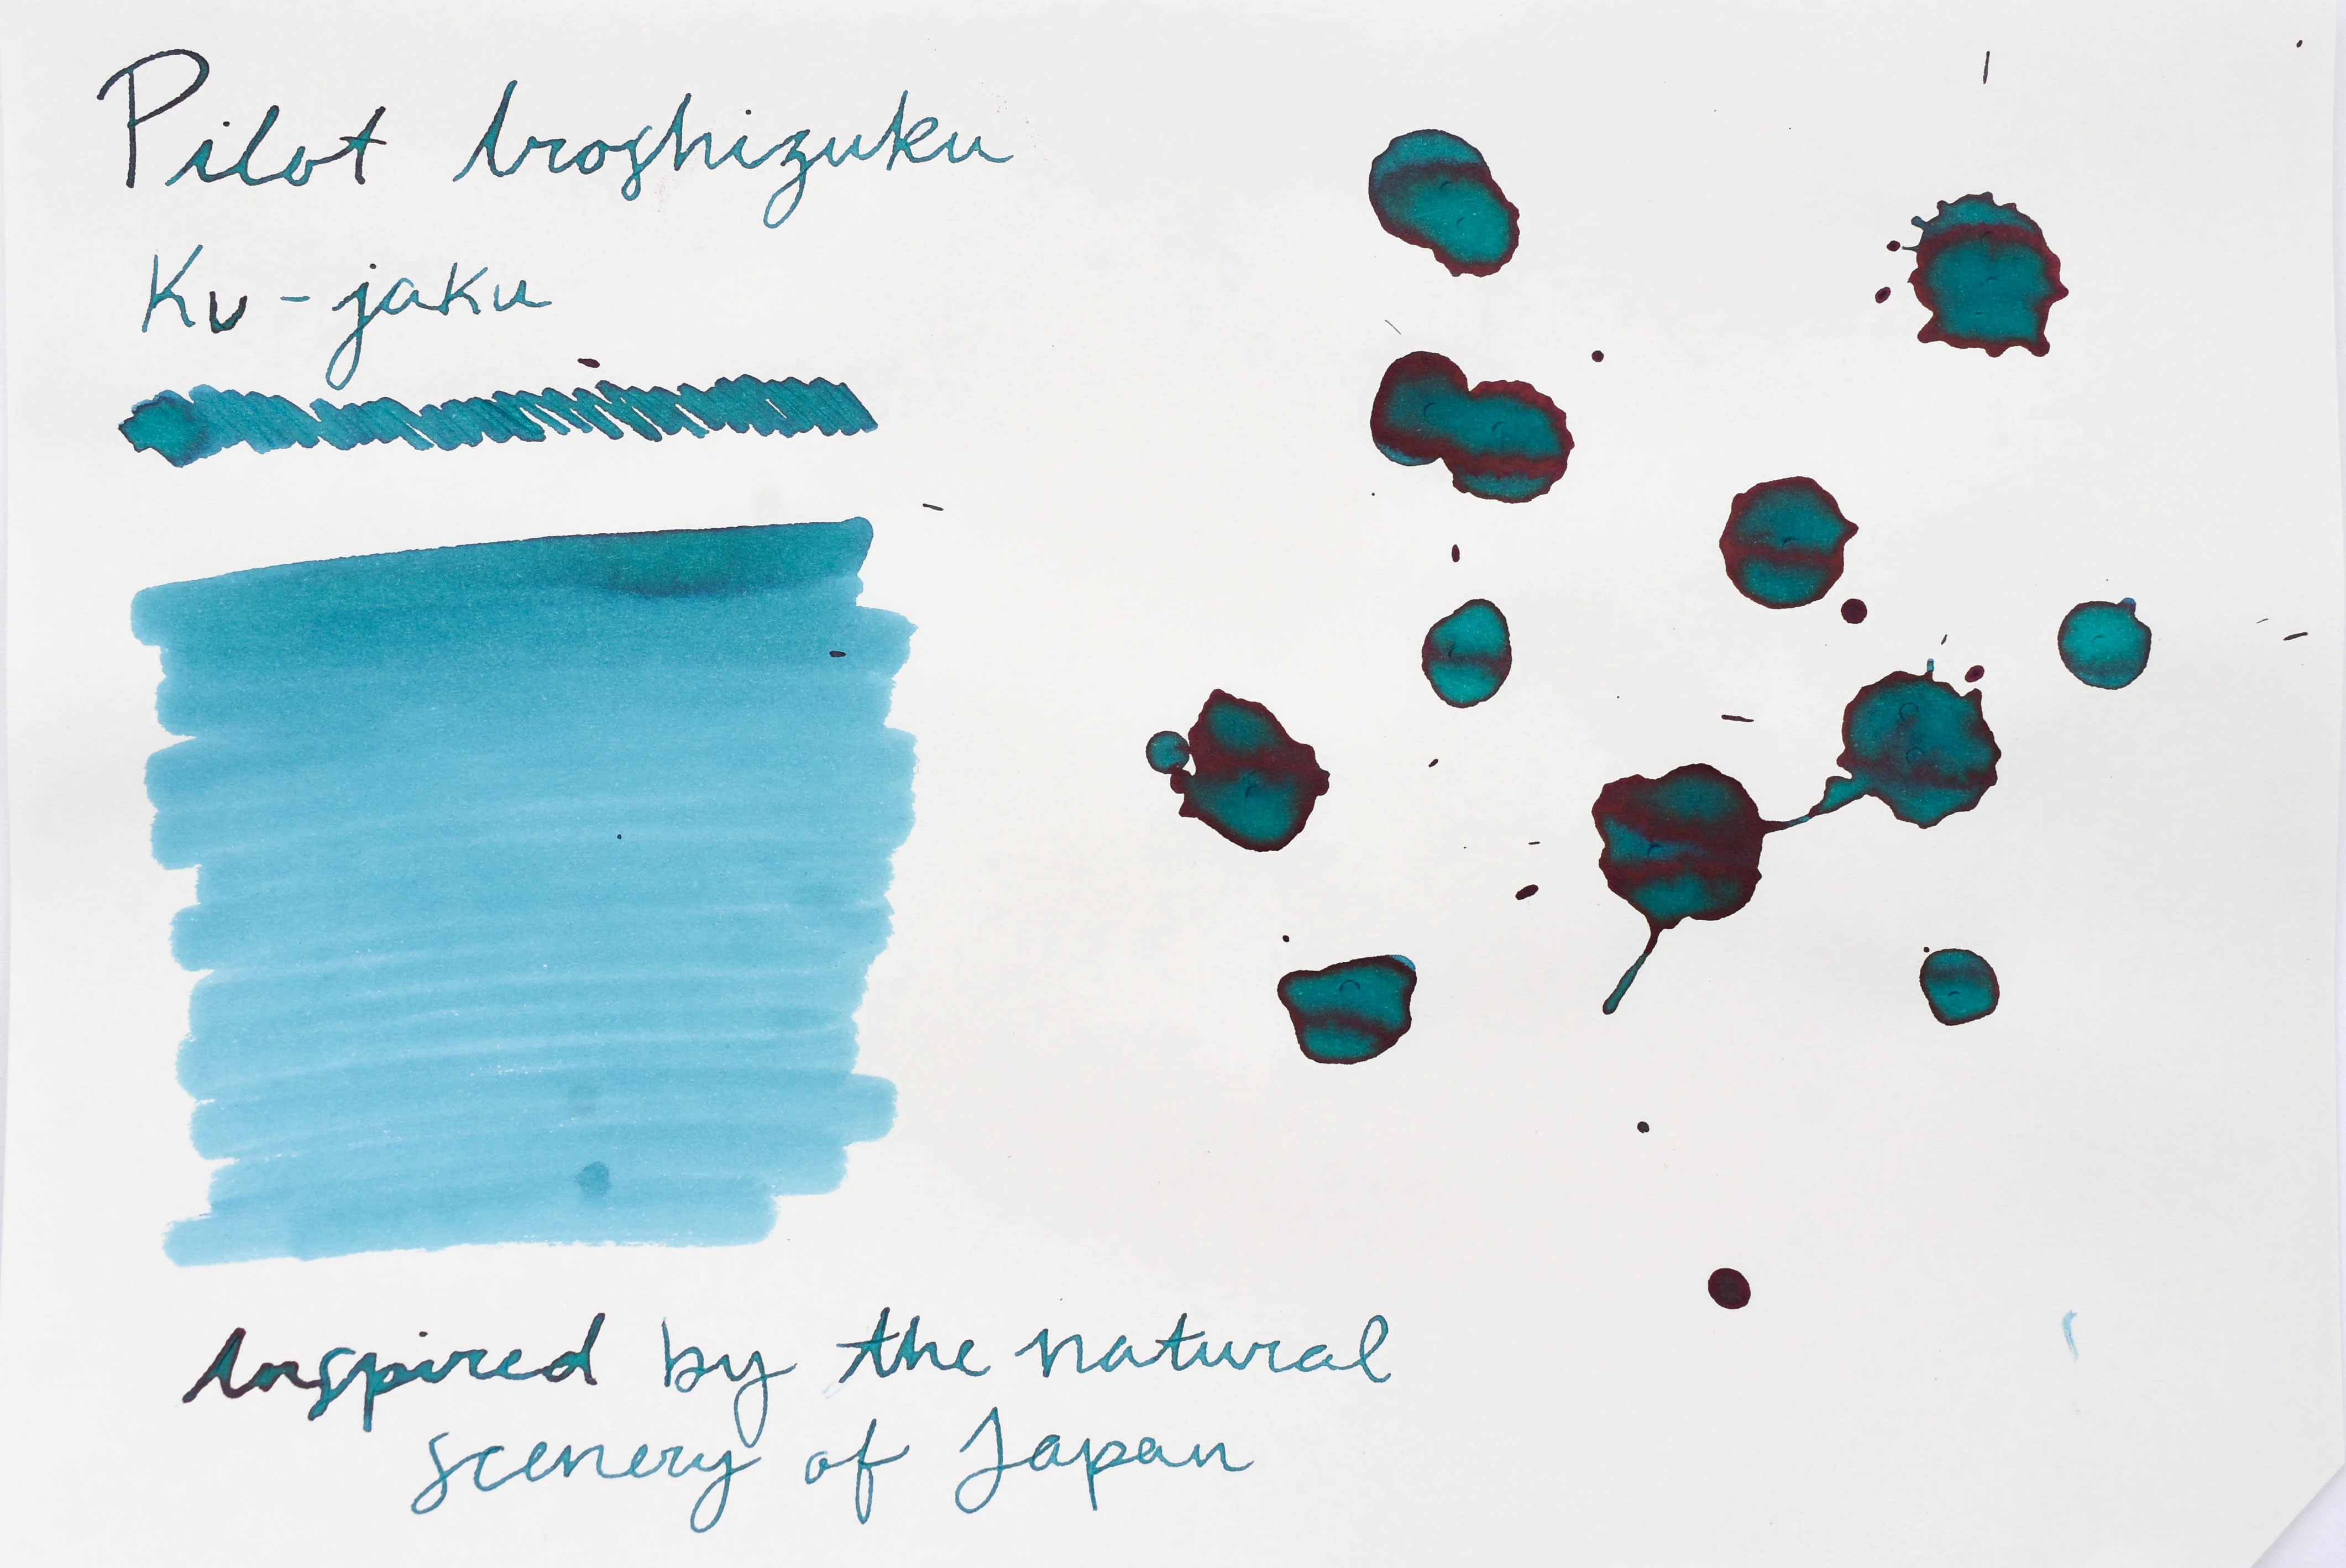 Pilot Iroshizuku
Ku-jaku
Inspired by the natural
scenery of Japan